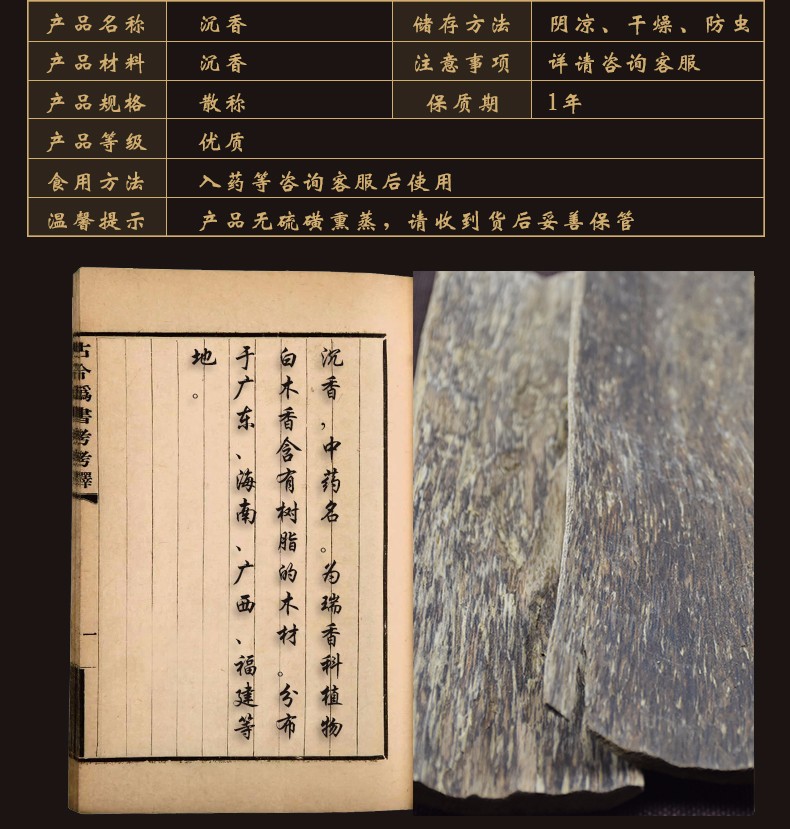 产品名称 沉香 储存方法 阴凉、干燥、防虫
产品材料 沉香 注意事项 详请咨询客服
产品规格 散称 保质期 1年
产品等级 优质
食用方法 入药等咨询客服后使用
温馨提示 产品无硫磺熏蒸，请收到货后妥善保管
沉香，中药名。为瑞香科植物
白木香含有树脂的木材。分布
于广东、海南、广西、福建等
地。
古今偽書考考釋
一